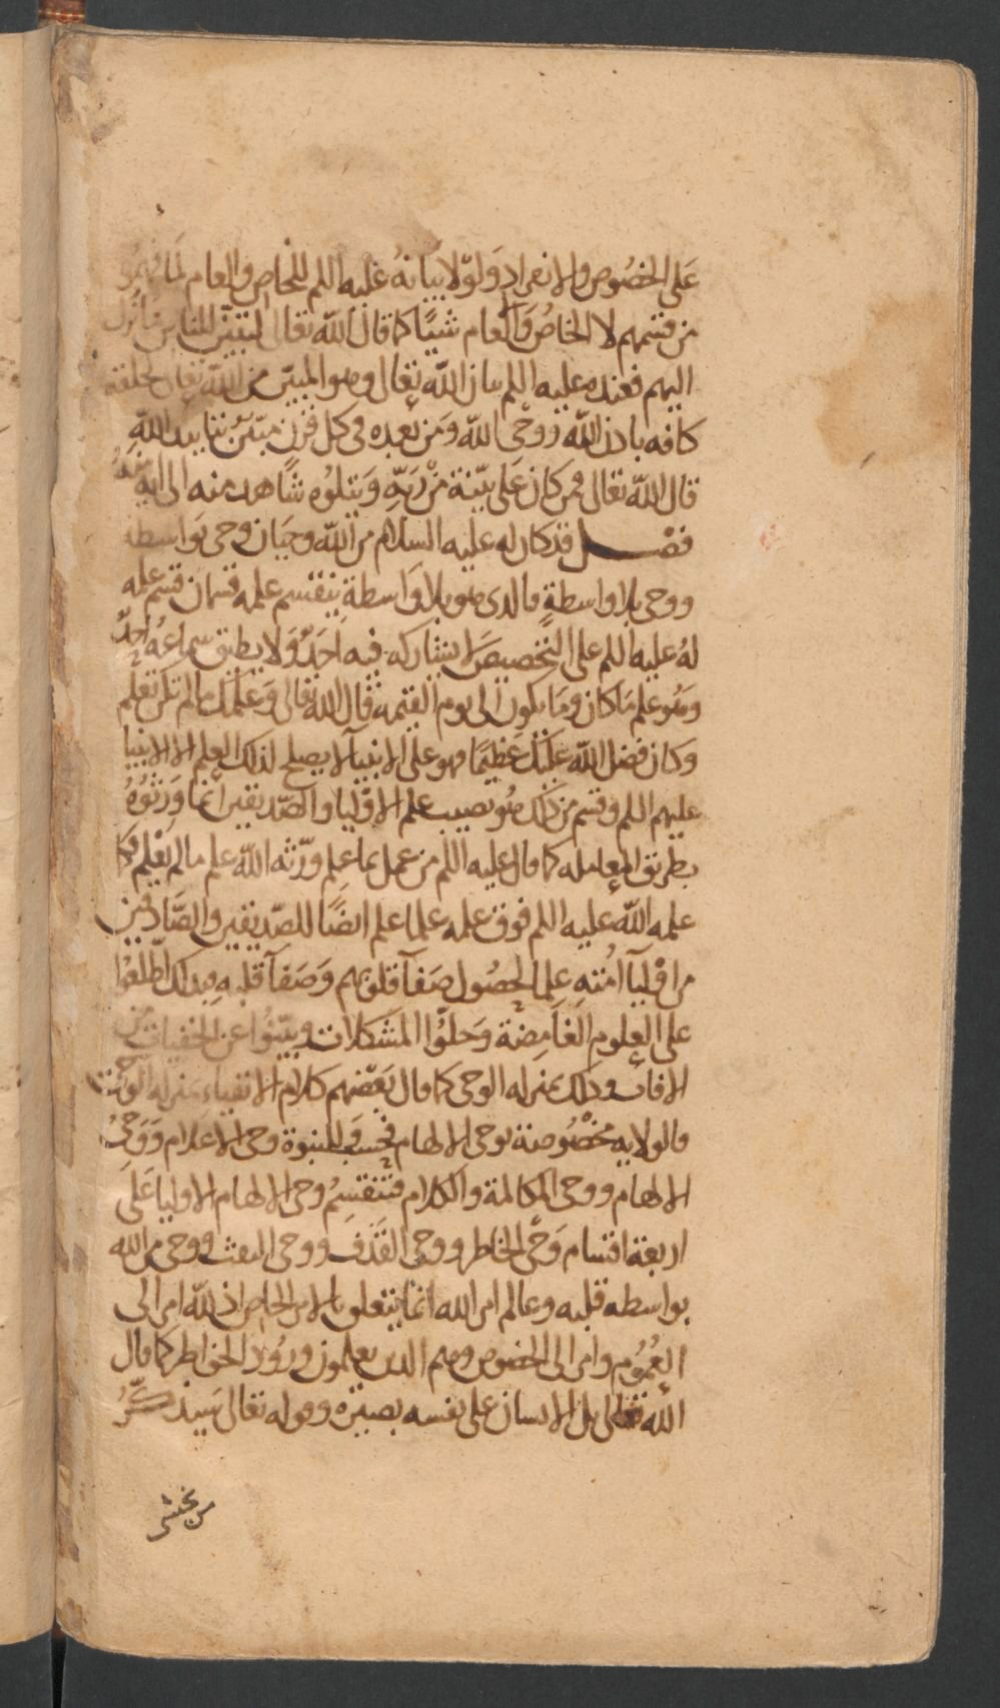 على الخصُوص والانفراد وَلولا بيانهُ عليه اللم للخاص والعام لما فهموُ
من قسمهم لا الخاصُ وَالعام شيئًا كما قال الله تعالى لتبين للناس ما نُزل
اليهم فعنده عليه اللم بيان الله تعالى وهو المبيّن من الله تعالى لخلقه
كافه باذن الله ووحي الله وَمن بعده في كل قرن مبيّنٌ بتاييد اللهِ
قال الله تعالى افمن كان عَلى بيّنة منْ رَبِّهِ وَيتلوُه شاهد منه الى اية
فصل قد كان له عليه السلام من الله وحيَان وحي بوَاسطه
ووحي بلا واسطةٍ فالذي هو بلا وَاسطةِ ينقسم علمه قسمان قسم علمه
لهُ عليه اللم على التخصيص لا يشاركه فيه احَدٌ وَلا يطيق سماعهُ احدٌ
وهُو علم مَا كان ومَا يكون الى يوم القيمة قال الله تعالى وَعلمك ما لم تكن تعلم
وَكان فضل الله عليك عظيمًا فهو على الانبيآ لا يصلح لذلك العلم الا الانبيا
عليهم اللم وقسم من ذلك هوُ نصيب علم الاوّليا والصّديقين انما ورَثوُهُ
بطريق المعامله كما قال عليه اللم من عمل بما علم ورّثه الله علم ما لم يعْلم فكما
علمه الله عليه اللم فوق علمه علما علم ايضًا للصّديقين والصَّادقين
من اوْليآ امُته علما لحصُول صَفآ قلوبهم وَصَفآ قلبه وبذلك اطّلعوُا
على العلوم الغَامِضة وَحلوُّا المشكلات وبيّنوُا عن الخفيات من
الافات وذلك بمنزله الوحي كما قال بَعْضهم كلام الاتقياء بمنزله الوحي
فالولايه مخْصُوصة بوحي الالهام فحسب والنبوة وحي الاعلام وَوَحيُ
الالهام ووحي المكالمة والكلام فتنقسمُ وحي الالهام الاوليا عَلى
اربعة اقسام وَحْي الخاطر ووحي القَذف ووحي النفث ووحي من الله
بواسطه قلبه وعالم امر الله انما يتعلق بالامر الخاص اذ لله امر الى
العُموُم وامر الى الخصُوص وهم الذين يعلمون ورُود الخواطر كما قال
الله تعالى بل الانسان على نفسه بصيرَه وقوله تعالى سَيذكّرُ
من يخشى